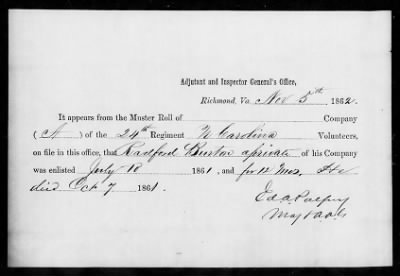 Adjutant and Inspector General's Office,
Richmond, Va. Nov 5th 1862.
It appears from the Muster Roll of Company
( A ) of the 24th Regiment N Carolina Volunteers,
on file in this office, that Radford Burton a private of his Company
was enlisted July 18 1861, and for 12 Mos. He
died Oct 7 1861.
Ed A Palfrey
Maj & A A G